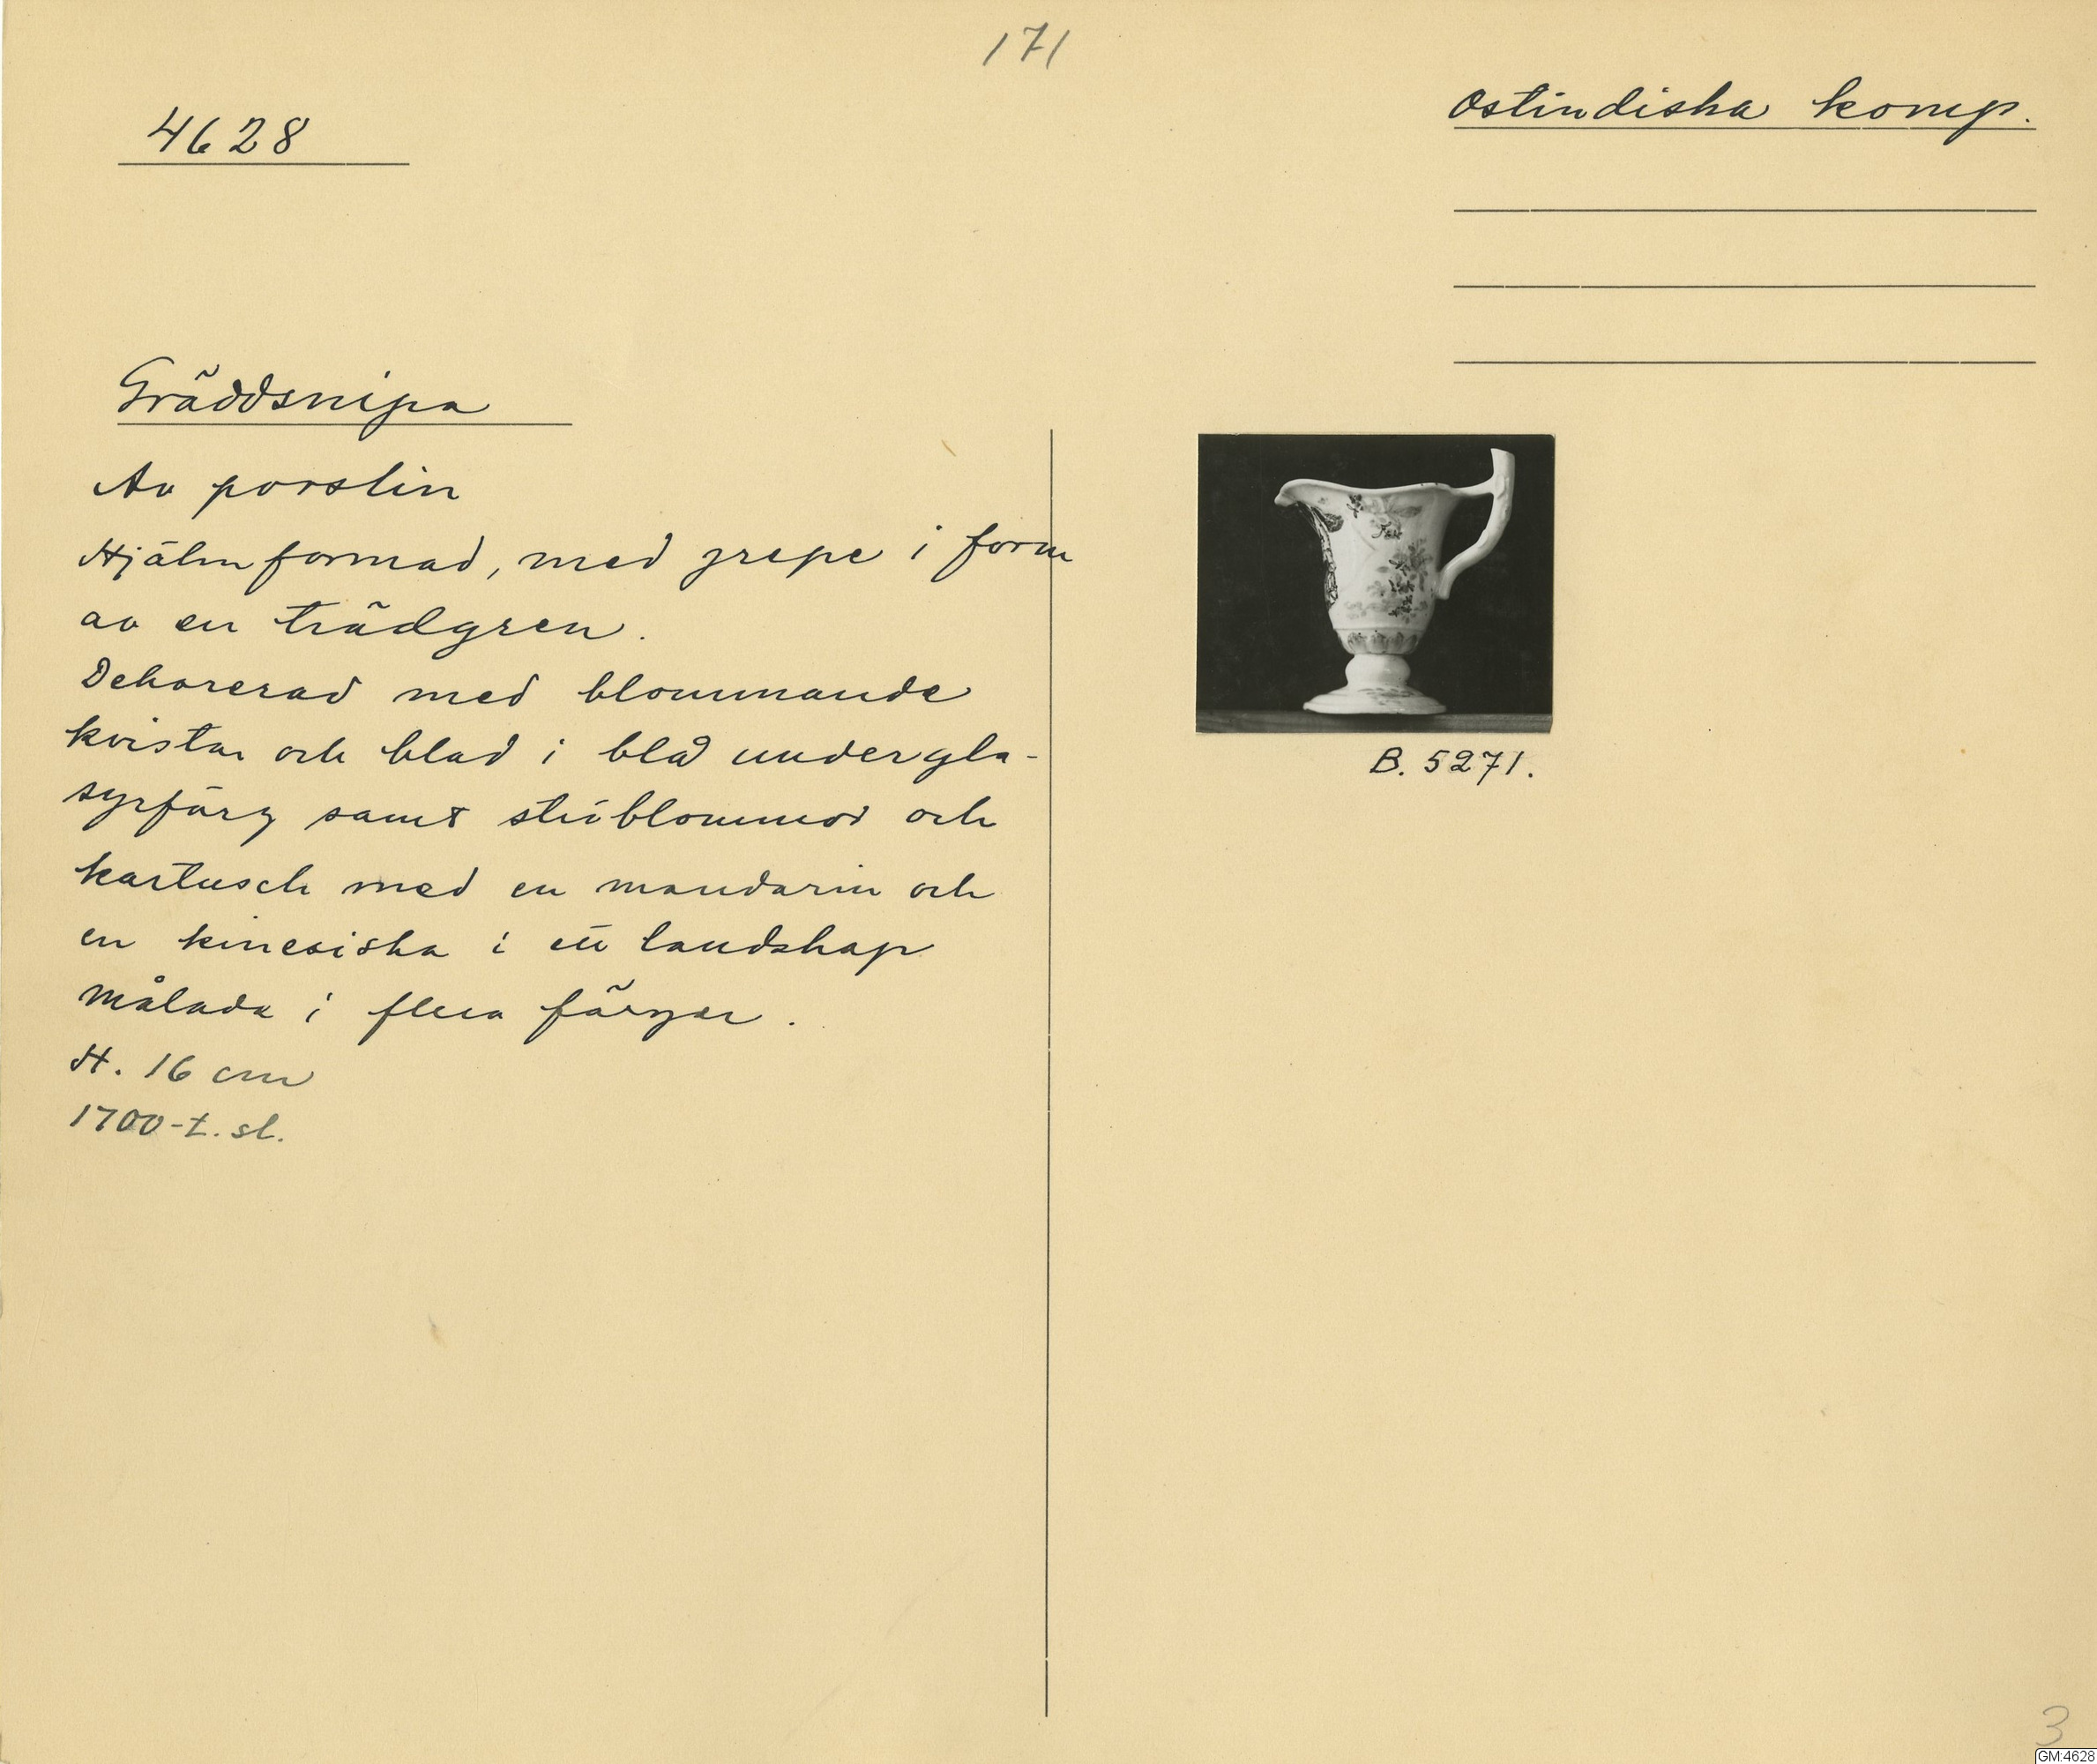 171
4628
Ostindiska komp.
Gräddsnipa
Av porslin
Hjälmformad, med grepe i form
av en trädgren.
Dekorerad med blommande
kvistar och blad i blå undergla-
syrfärg samt ströblommor och
kartusch med en mandarin och
en kinesiska i ett landskap
målade i flera färger.
H. 16 cm
1700-t. sl.
B. 5271.
3
GM:4628